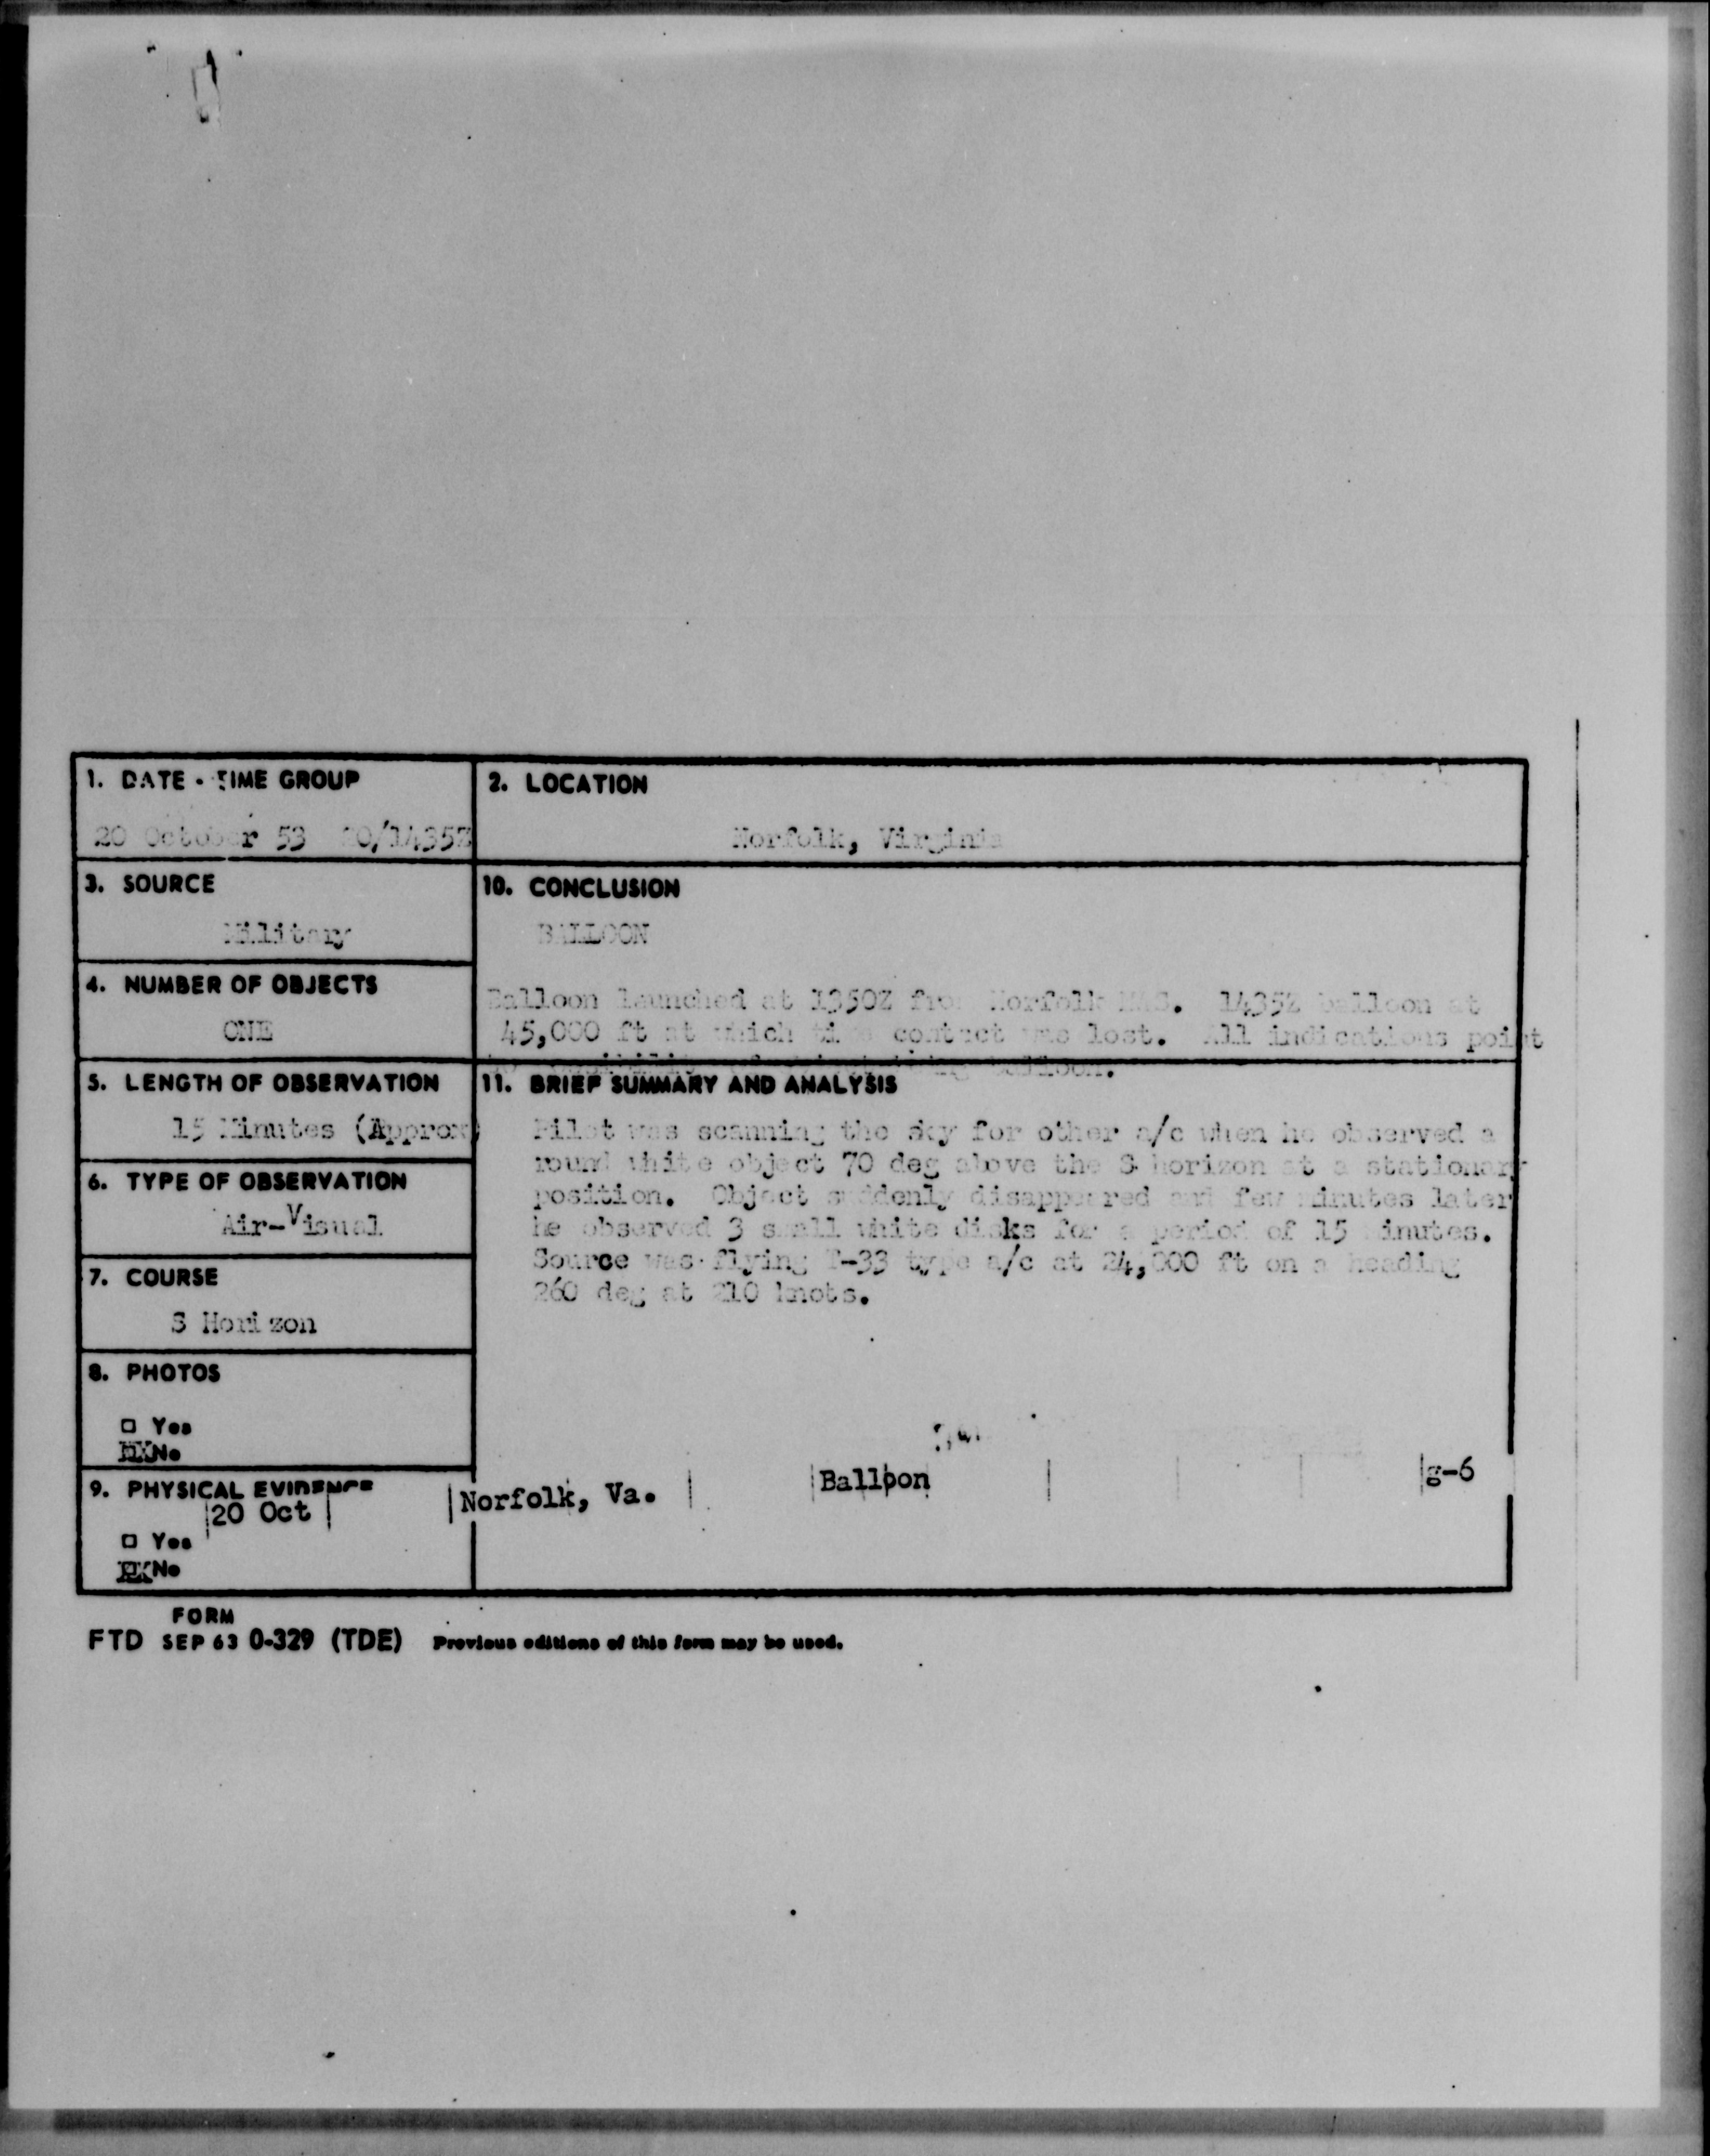 1. DATE - TIME GROUP
20 October 53 20/1435Z
2. LOCATION
Norfolk, Virginia
3. SOURCE
Military
10. CONCLUSION
BALLOON
Balloon launched at 1350Z from Norfolk NAS. 1435Z balloon at
45,000 ft at which time contact was lost. All indications point
balloon.
4. NUMBER OF OBJECTS
ONE
5. LENGTH OF OBSERVATION
15 Minutes (Approx)
11. BRIEF SUMMARY AND ANALYSIS
Pilot was scanning the sky for other a/c when he observed a
round white object 70 deg above the S horizon at a stationary
position. Object suddenly disappeared and few minutes later
he observed 3 small white disks for a period of 15 minutes.
Source was flying T-33 type a/c at 24,000 ft on a heading
260 deg at 210 knots.
6. TYPE OF OBSERVATION
Air-Visual
7. COURSE
S Horizon
8. PHOTOS
□ Yes
☒ No
9. PHYSICAL EVIDENCE
20 Oct Norfolk, Va. Balloon g-6
□ Yes
☒ No
FORM
FTD SEP 63 0-329 (TDE) Previous editions of this form may be used.